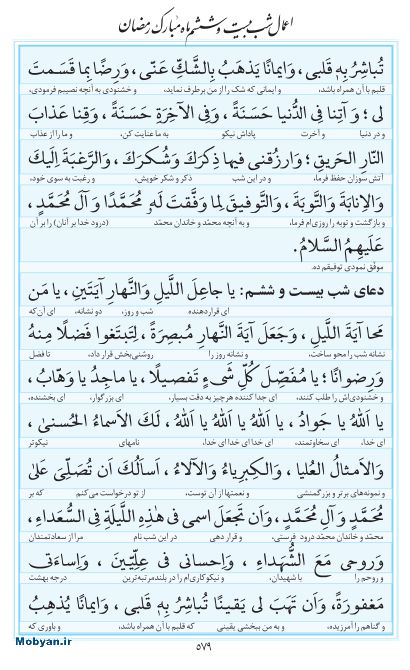 اعمال شب بیست و ششم ماه مبارک رمضان
تُباشِرُ بِهِ قَلبى ، وَايمانًا يَذهَبُ بِالشَّكِّ عَنّى ، وَرِضًا بِما قَسَمتَ
قلبم با آن همراه باشد، و ایمانی که شک را از من برطرف نماید، و خشنودی به آنچه نصیبم فرمودی،
لى ؛ وَ آتِنا فِى الدُّنيا حَسَنَةً ، وَفِى الآخِرَةِ حَسَنَةً ، وَقِنا عَذابَ
و در دنیا پاداش نیکو و آخرت به ما عنایت کن، و ما را از عذاب
النّارِ الحَريقِ ؛ وَارزُقنى فيها ذِكرَكَ وَشُكرَكَ ، وَالرَّغبَةَ اِلَيكَ
آتش سوزان حفظ فرما، و در این شب ذکر و شکر خویش، و رغبت به سوی خود،
وَالاِنابَةَ وَالتَّوبَةَ ، وَالتَّوفيقَ لِما وَفَّقتَ لَهُ مُحَمَّدًا وَ آلَ مُحَمَّدٍ ،
و بازگشت و توبه را روزی‌ام فرما، و به آنچه محمّد و خاندان محمّد (درود خدا بر آنان) را بر آن
عَلَيهِمُ السَّلامُ.
موفق نمودی توفیقم ده.
دعای شب بیست و ششم: يا جاعِلَ اللَّيلِ وَالنَّهارِ آيَتَينِ ، يا مَن
ای قراردهنده شب و روز، دو نشانه، ای آن که
مَحا آيَةَ اللَّيلِ ، وَجَعَلَ آيَةَ النَّهارِ مُبصِرَةً ، لِتَبتَغوا فَضلًا مِنهُ
نشانه شب را محو ساخت، و نشانه روز را روشنی‌بخش قرار داد، تا فضل
وَ رِضوانًا ؛ يا مُفَصِّلَ كُلِّ شَىءٍ تَفصيلًا ، يا ماجِدُ يا وَهّابُ ،
و خشنودی‌اش را طلب کنند، ای جدا کننده هرچیز به دقت بسیار، ای بزرگوار، ای بخشنده،
يا اَللهُ يا جَوادُ ، يا اَللهُ يا اَللهُ يا اَللهُ ، لَكَ الاَسماءُ الحُسنىٰ ،
ای خدا، ای سخاوتمند، ای خدا ای خدا ای خدا، نامهای نیکوتر
وَالاَمثالُ العُليا ، وَالكِبرِياءُ وَالآلاءُ ، اَسأَلُكَ اَن تُصَلِّىَ عَلىٰ
و نمونه‌های برتر و بزرگمنشی و نعمتها از آن توست، از تو درخواست می کنم که بر
مُحَمَّدٍ وَآلِ مُحَمَّدٍ، وَاَن تَجعَلَ اسمى فى هٰذِهِ اللَّيلَةِ فِى السُّعَداءِ،
محمّد و خاندان محمّد درود فرستی، و قرار دهی در این شب نام مرا از سعادتمندان
وَروحى مَعَ الشُّهَداءِ ، وَاِحسانى فى عِلِّيّينَ ، وَاِساءَتى
و روحم را با شهیدان، و نیکوکاری‌ام را در بلندمرتبه‌ترین درجه بهشت
مَغفورَةً، وَاَن تَهَبَ لى يَقينًا تُباشِرُ بِهِ قَلبى ، وَايمانًا يُذهِبُ
و گناهم را آمرزیده، و به من ببخشی یقینی که قلبم با آن همراه باشد، و باوری که
۵۷۹
Mobyan.ir